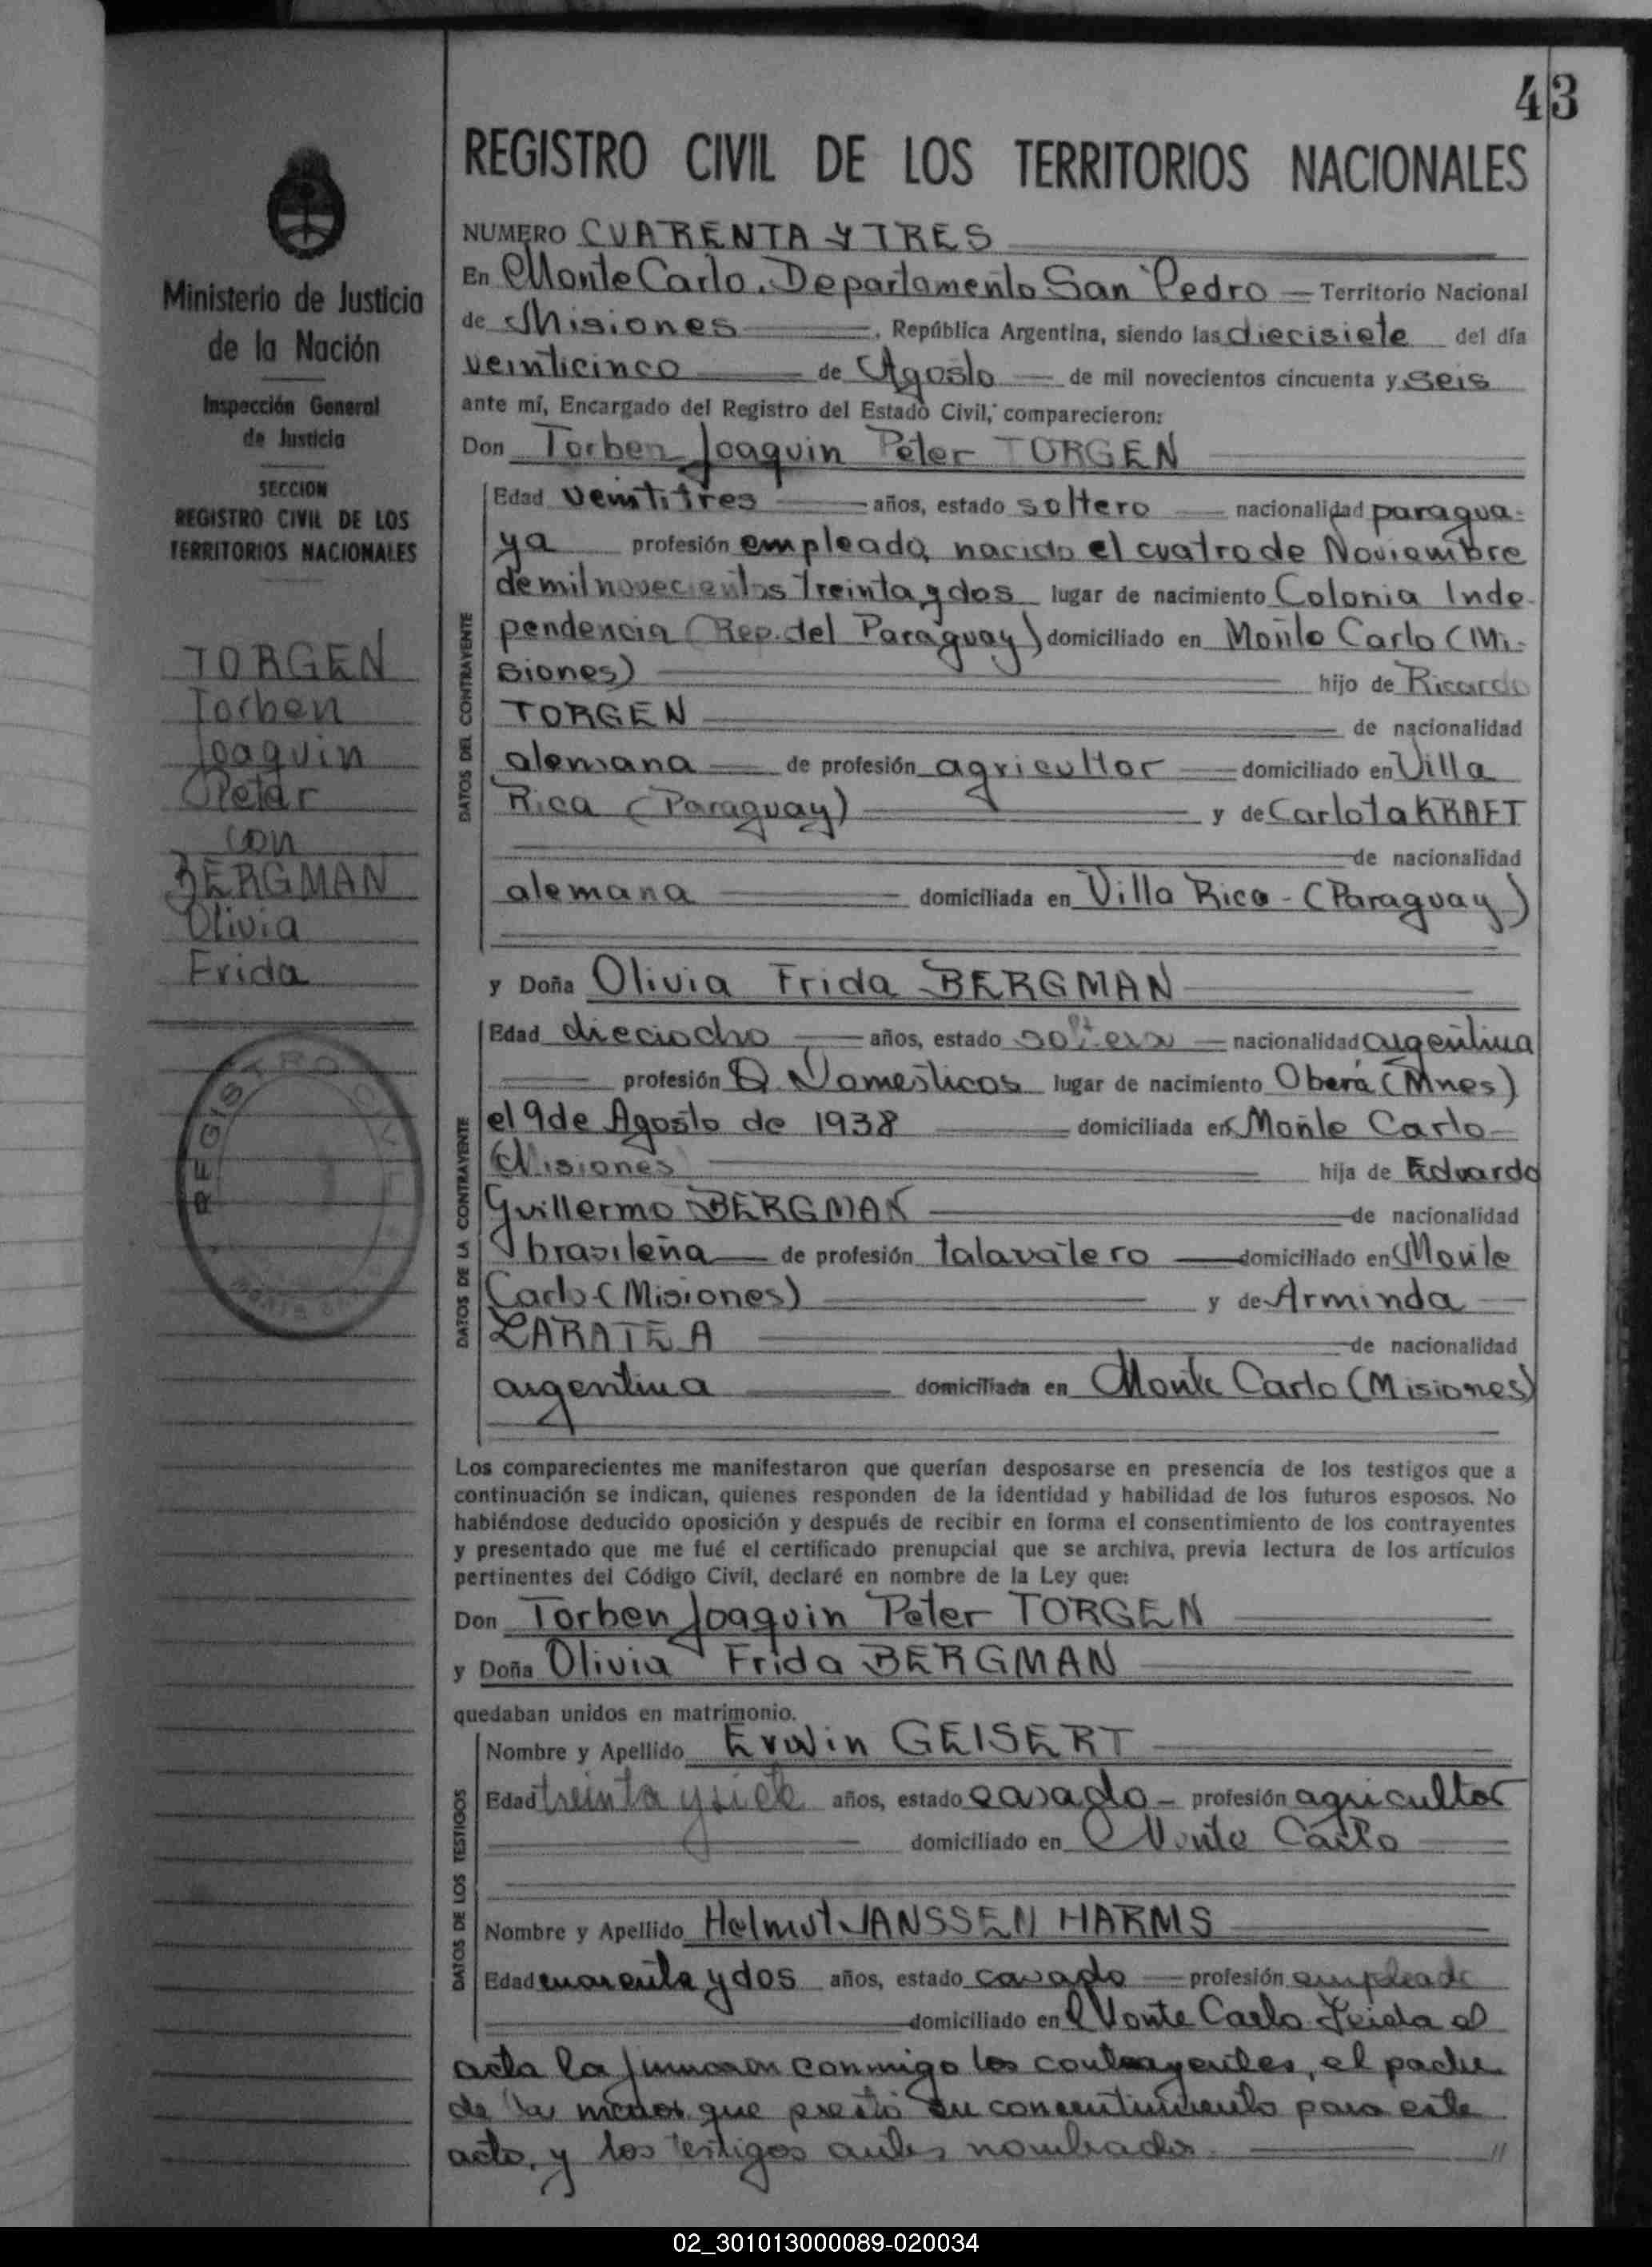 43
REGISTRO CIVIL DE LOS TERRITORIOS NACIONALES
Ministerio de Justicia
de la Nación
Inspección General
de Justicia
SECCION
REGISTRO CIVIL DE LOS
TERRITORIOS NACIONALES
TORGEN
Torben
Joaquin
Peter
con
BERGMAN
Olivia
Frida
REGISTRO CIVIL
NUMERO CUARENTA Y TRES
En Monte Carlo. Departamento San Pedro — Territorio Nacional
de Misiones , República Argentina, siendo las diecisiete del día
veinticinco de Agosto de mil novecientos cincuenta y seis
ante mí, Encargado del Registro del Estado Civil, comparecieron:
Don Torben Joaquin Peter TORGEN
DATOS DEL CONTRAYENTE
Edad veintitres años, estado soltero nacionalidad paragua-
ya profesión empleado, nacido el cuatro de Noviembre
de mil novecientos treinta y dos lugar de nacimiento Colonia Inde-
pendencia (Rep. del Paraguay) domiciliado en Monte Carlo (Mi-
siones) hijo de Ricardo
TORGEN de nacionalidad
alemana de profesión agricultor domiciliado en Villa
Rica (Paraguay) y de Carlota KRAFT
de nacionalidad
alemana domiciliada en Villa Rica - (Paraguay)
y Doña Olivia Frida BERGMAN
DATOS DE LA CONTRAYENTE
Edad dieciocho años, estado soltera nacionalidad argentina
profesión Q. Domesticos lugar de nacimiento Oberá (Mnes)
el 9 de Agosto de 1938 domiciliada en Monte Carlo
Misiones hija de Eduardo
Guillermo BERGMAN de nacionalidad
brasileña de profesión talavatero domiciliado en Monte
Carlo (Misiones) y de Arminda
ZARATE A de nacionalidad
argentina domiciliada en Monte Carlo (Misiones)
Los comparecientes me manifestaron que querían desposarse en presencia de los testigos que a
continuación se indican, quienes responden de la identidad y habilidad de los futuros esposos. No
habiéndose deducido oposición y después de recibir en forma el consentimiento de los contrayentes
y presentado que me fué el certificado prenupcial que se archiva, previa lectura de los artículos
pertinentes del Código Civil, declaré en nombre de la Ley que:
Don Torben Joaquin Peter TORGEN
y Doña Olivia Frida BERGMAN
quedaban unidos en matrimonio.
DATOS DE LOS TESTIGOS
Nombre y Apellido Erwin GEISERT
Edad treinta y siete años, estado casado — profesión agricultor
domiciliado en Monte Carlo
Nombre y Apellido Helmut JANSSEN HARMS
Edad cuarenta y dos años, estado casado profesión empleado
domiciliado en Monte Carlo. Leida el
acta la firmaron conmigo los contrayentes, el padre
de la menor que prestó su consentimiento para este
acto, y los testigos antes nombrados. "
02_301013000089-020034